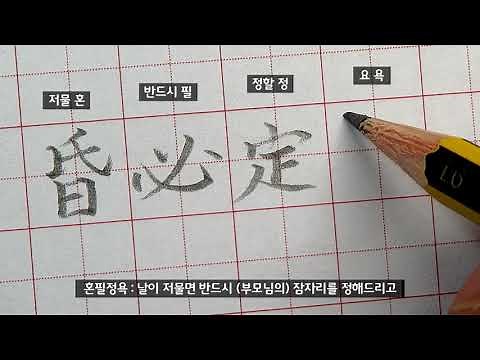 저물 혼 반드시 필 정할 정 요 욕
昏必定
LO
혼필정욕 : 날이 저물면 반드시 (부모님의) 잠자리를 정해드리고